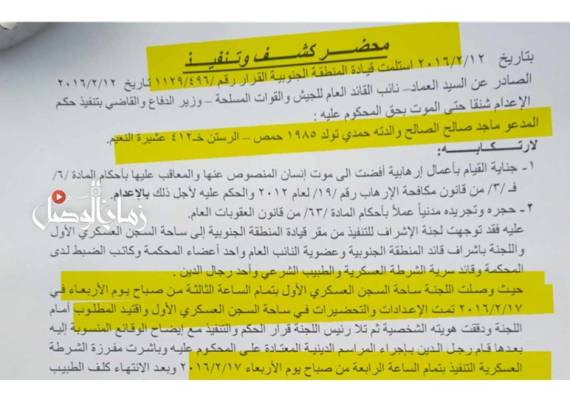 محضر كشف وتنفيذ
بتاريخ ٢٠١٦/٢/١٢ استلمت قيادة المنطقة الجنوبية القرار رقم /١١٢٩/٤٩٦ تاريخ ٢٠١٦/٢/١٢
الصادر عن السيد العماد – نائب القائد العام للجيش والقوات المسلحة – وزير الدفاع والقاضي بتنفيذ حكم
الإعدام شنقا حتى الموت بحق المحكوم عليه :
المدعو ماجد صالح الصالح والدته حمدي تولد ١٩٨٥ حمص – الرستن خـ٤١٢ عشيرة النعيم.
لارتكابه:
١- جناية القيام بأعمال إرهابية أفضت الى موت إنسان المنصوص عنها والمعاقب عليها بأحكام المادة /٦/
فـ /٣/ من قانون مكافحة الإرهاب رقم /١٩/ لعام ٢٠١٢ والحكم عليه لأجل ذلك بالإعدام.
٢- حجره وتجريده مدنياً عملاً بأحكام المادة /٦٣/ من قانون العقوبات العام.
عليه فقد توجهت لجنة الإشراف للتنفيذ من مقر قيادة المنطقة الجنوبية إلى ساحة السجن العسكري الأول
واللجنة بإشراف قائد المنطقة الجنوبية وعضوية النائب العام واحد أعضاء المحكمة وكاتب الضبط لدى
المحكمة وقائد سرية الشرطة العسكرية والطبيب الشرعي وأحد رجال الدين .
حيث وصلت اللجنة ساحة السجن العسكري الأول بتمام الساعة الثالثة من صباح يوم الأربعاء في
٢٠١٦/٢/١٧ تمت الإعدادات والتحضيرات في ساحة السجن العسكري الأول واقتيد المطلوب أمام
اللجنة ودققت هويته الشخصية ثم تلا رئيس اللجنة قرار الحكم والتنفيذ مع إيضاح الوقائع المنسوبة إليه
بعدها قام رجل الدين بإجراء المراسم الدينية المعتادة على المحكوم عليه وباشرت مفرزة الشرطة
العسكرية التنفيذ بتمام الساعة الرابعة من صباح يوم الأربعاء ٢٠١٦/٢/١٧ وبعد الانتهاء كلف الطبيب
زمان الوصل